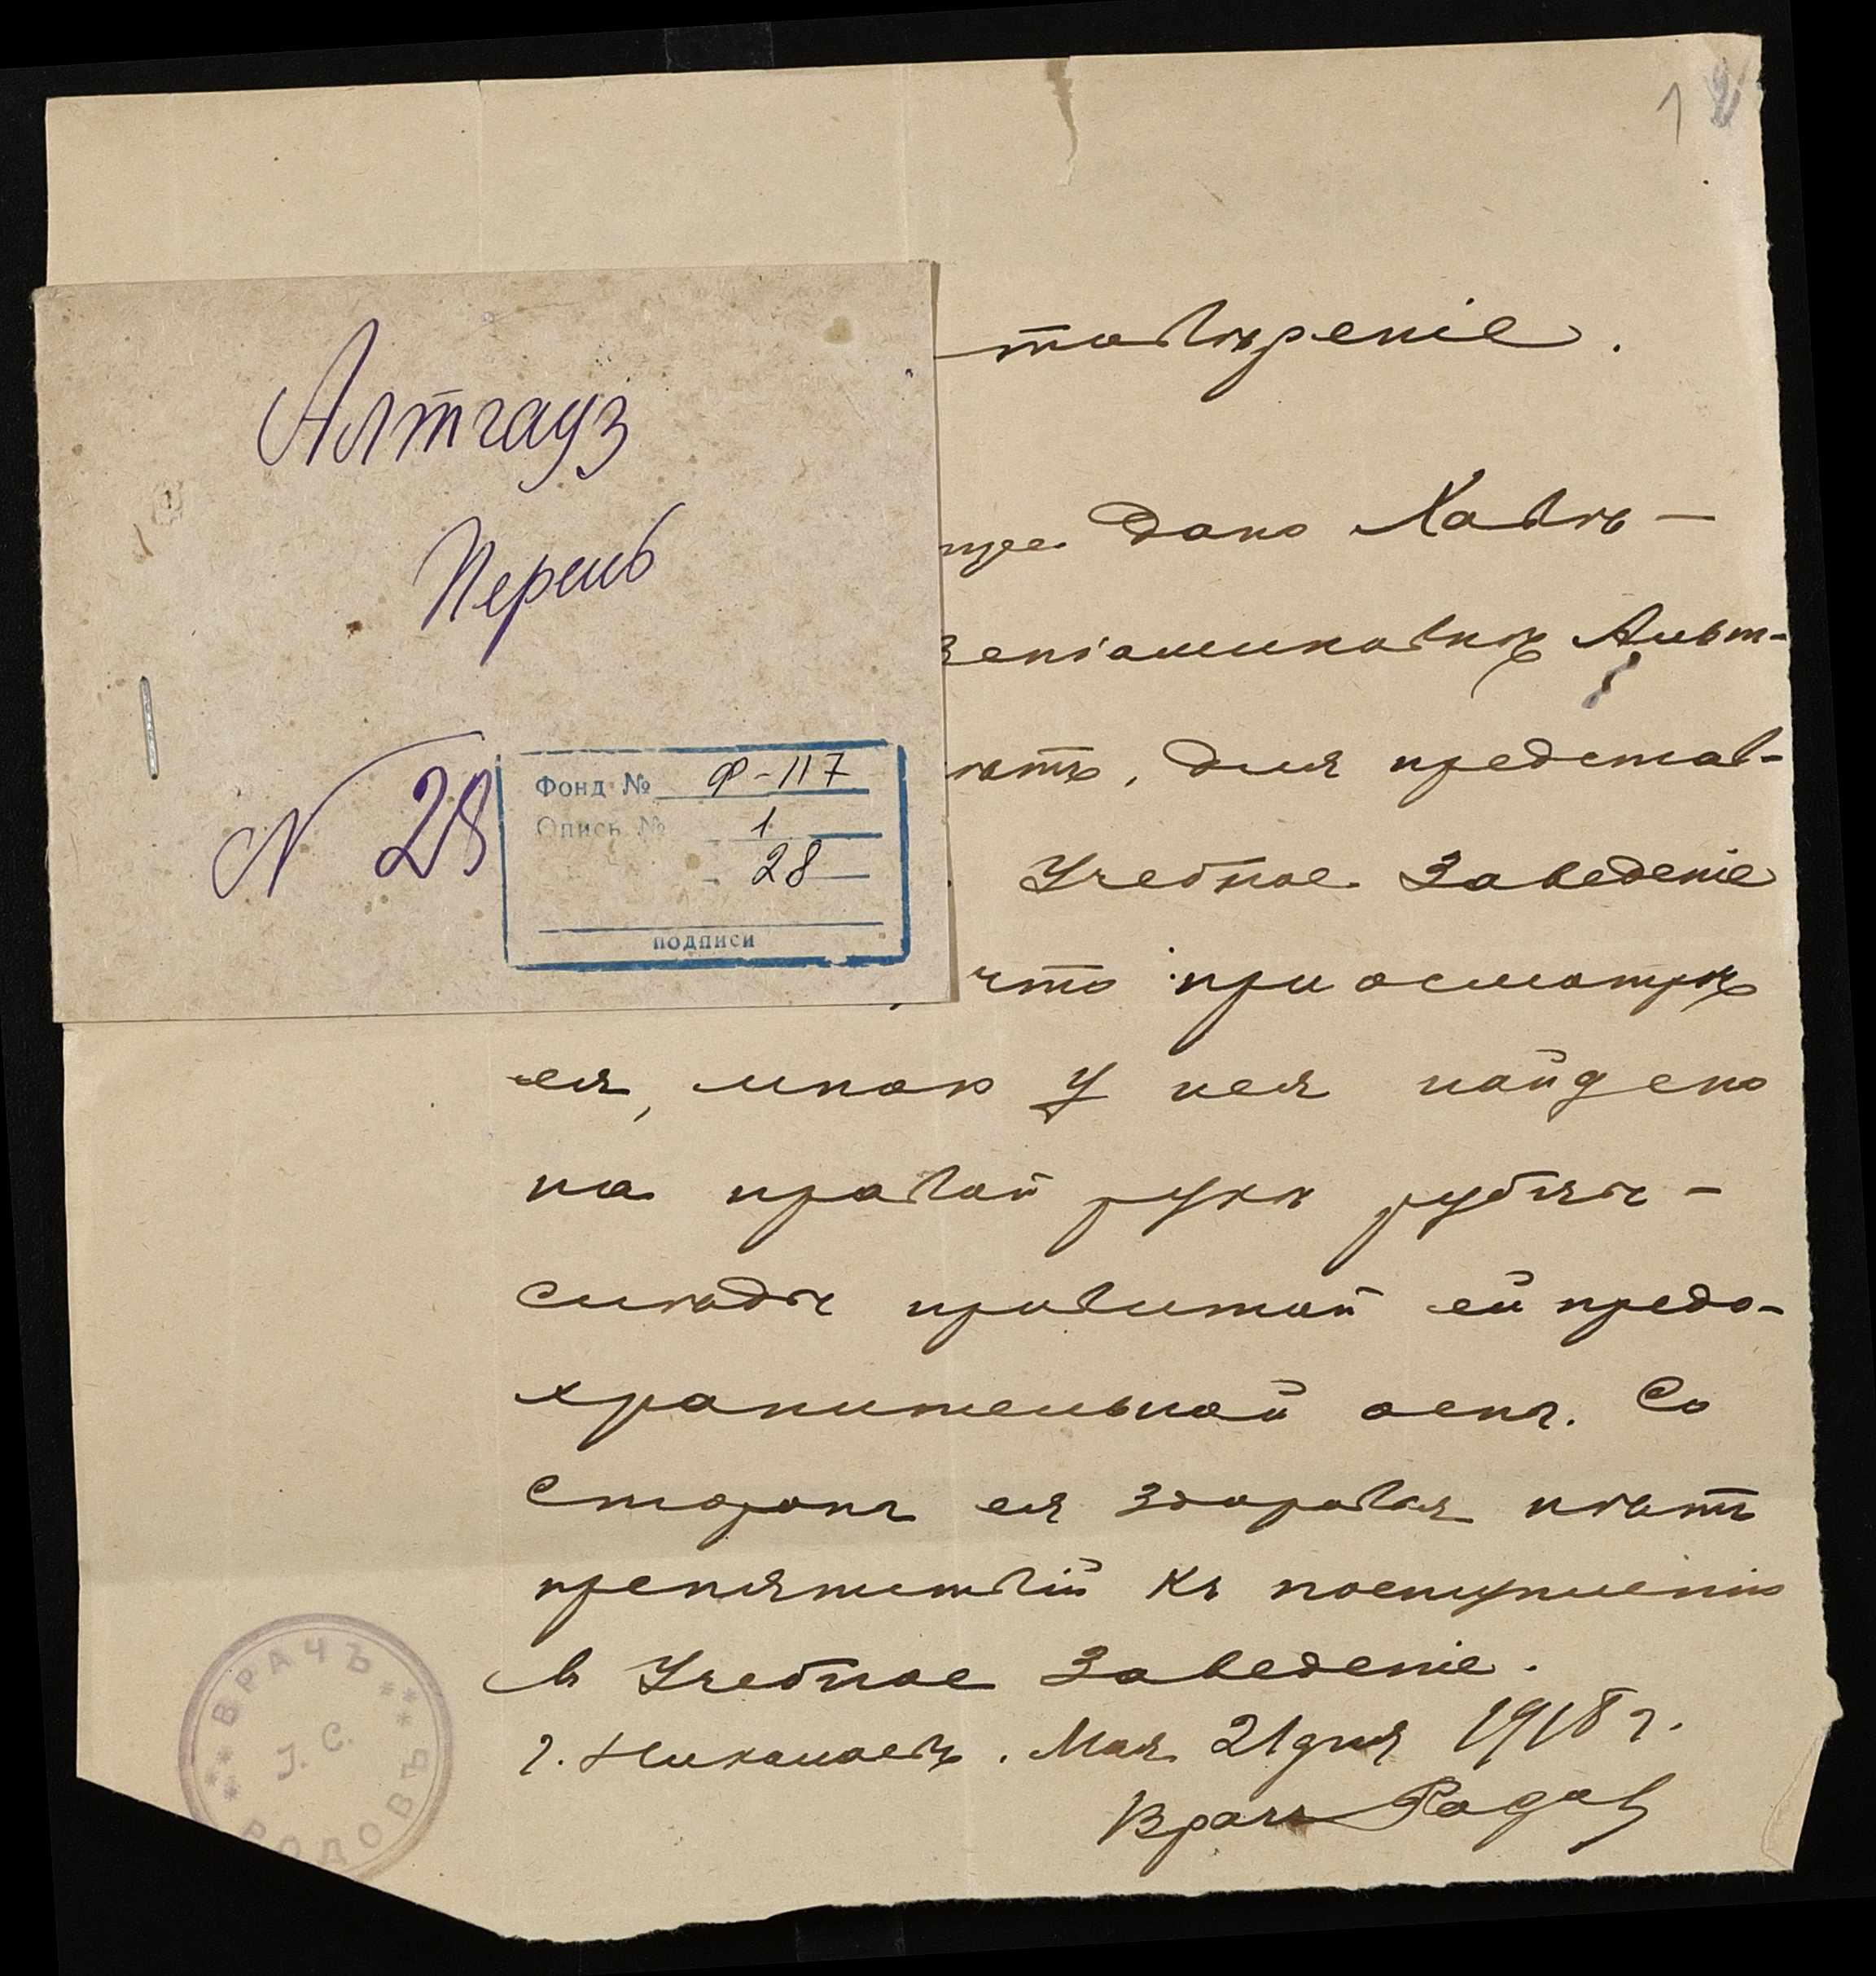 1 2
Алтгауз
Перль
N 28
Фонд № Ф-117
Опись № 1
28
подписи
товѣреніе.
щее дано Хавѣ-
веніаминовнѣ Альт-
для представ-
Учебное Заведеніе
что при осмотрѣ
ея, мною у нея найдено
на правой рукѣ рубецъ-
слѣды привитой ей предо-
хранительной оспы. Со
стороны ея здоровья нѣтъ
препятствій къ поступленію
въ Учебное Заведеніе.
г. Николаевъ. Мая 21 дня 1918 г.
Врачъ Родов
ВРАЧЪ
І. С.
РОДОВЪ